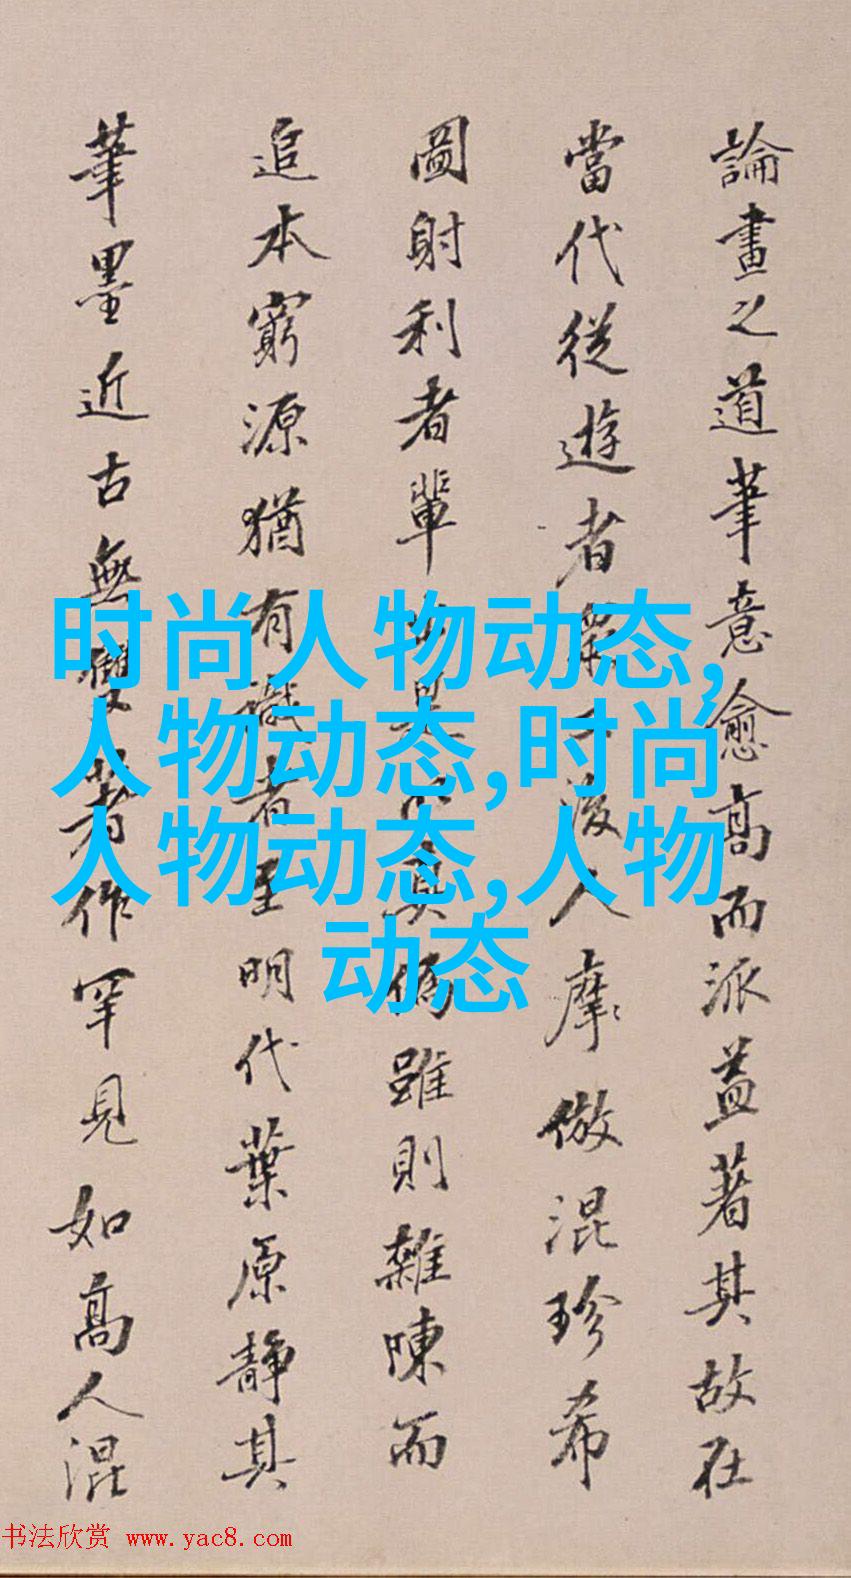 論畫之道筆意愈高而派益著其故在
當代從遊者後人摩倣混珍希
圖射利者輩真偽雖則雜陳而
追本窮源猶有識者至明代葉原靜其
筆墨近古無雙著作罕見如高人混
时尚人物动态,
人物动态,时尚
人物动态,人物
动态
书法欣赏 www.yac8.com